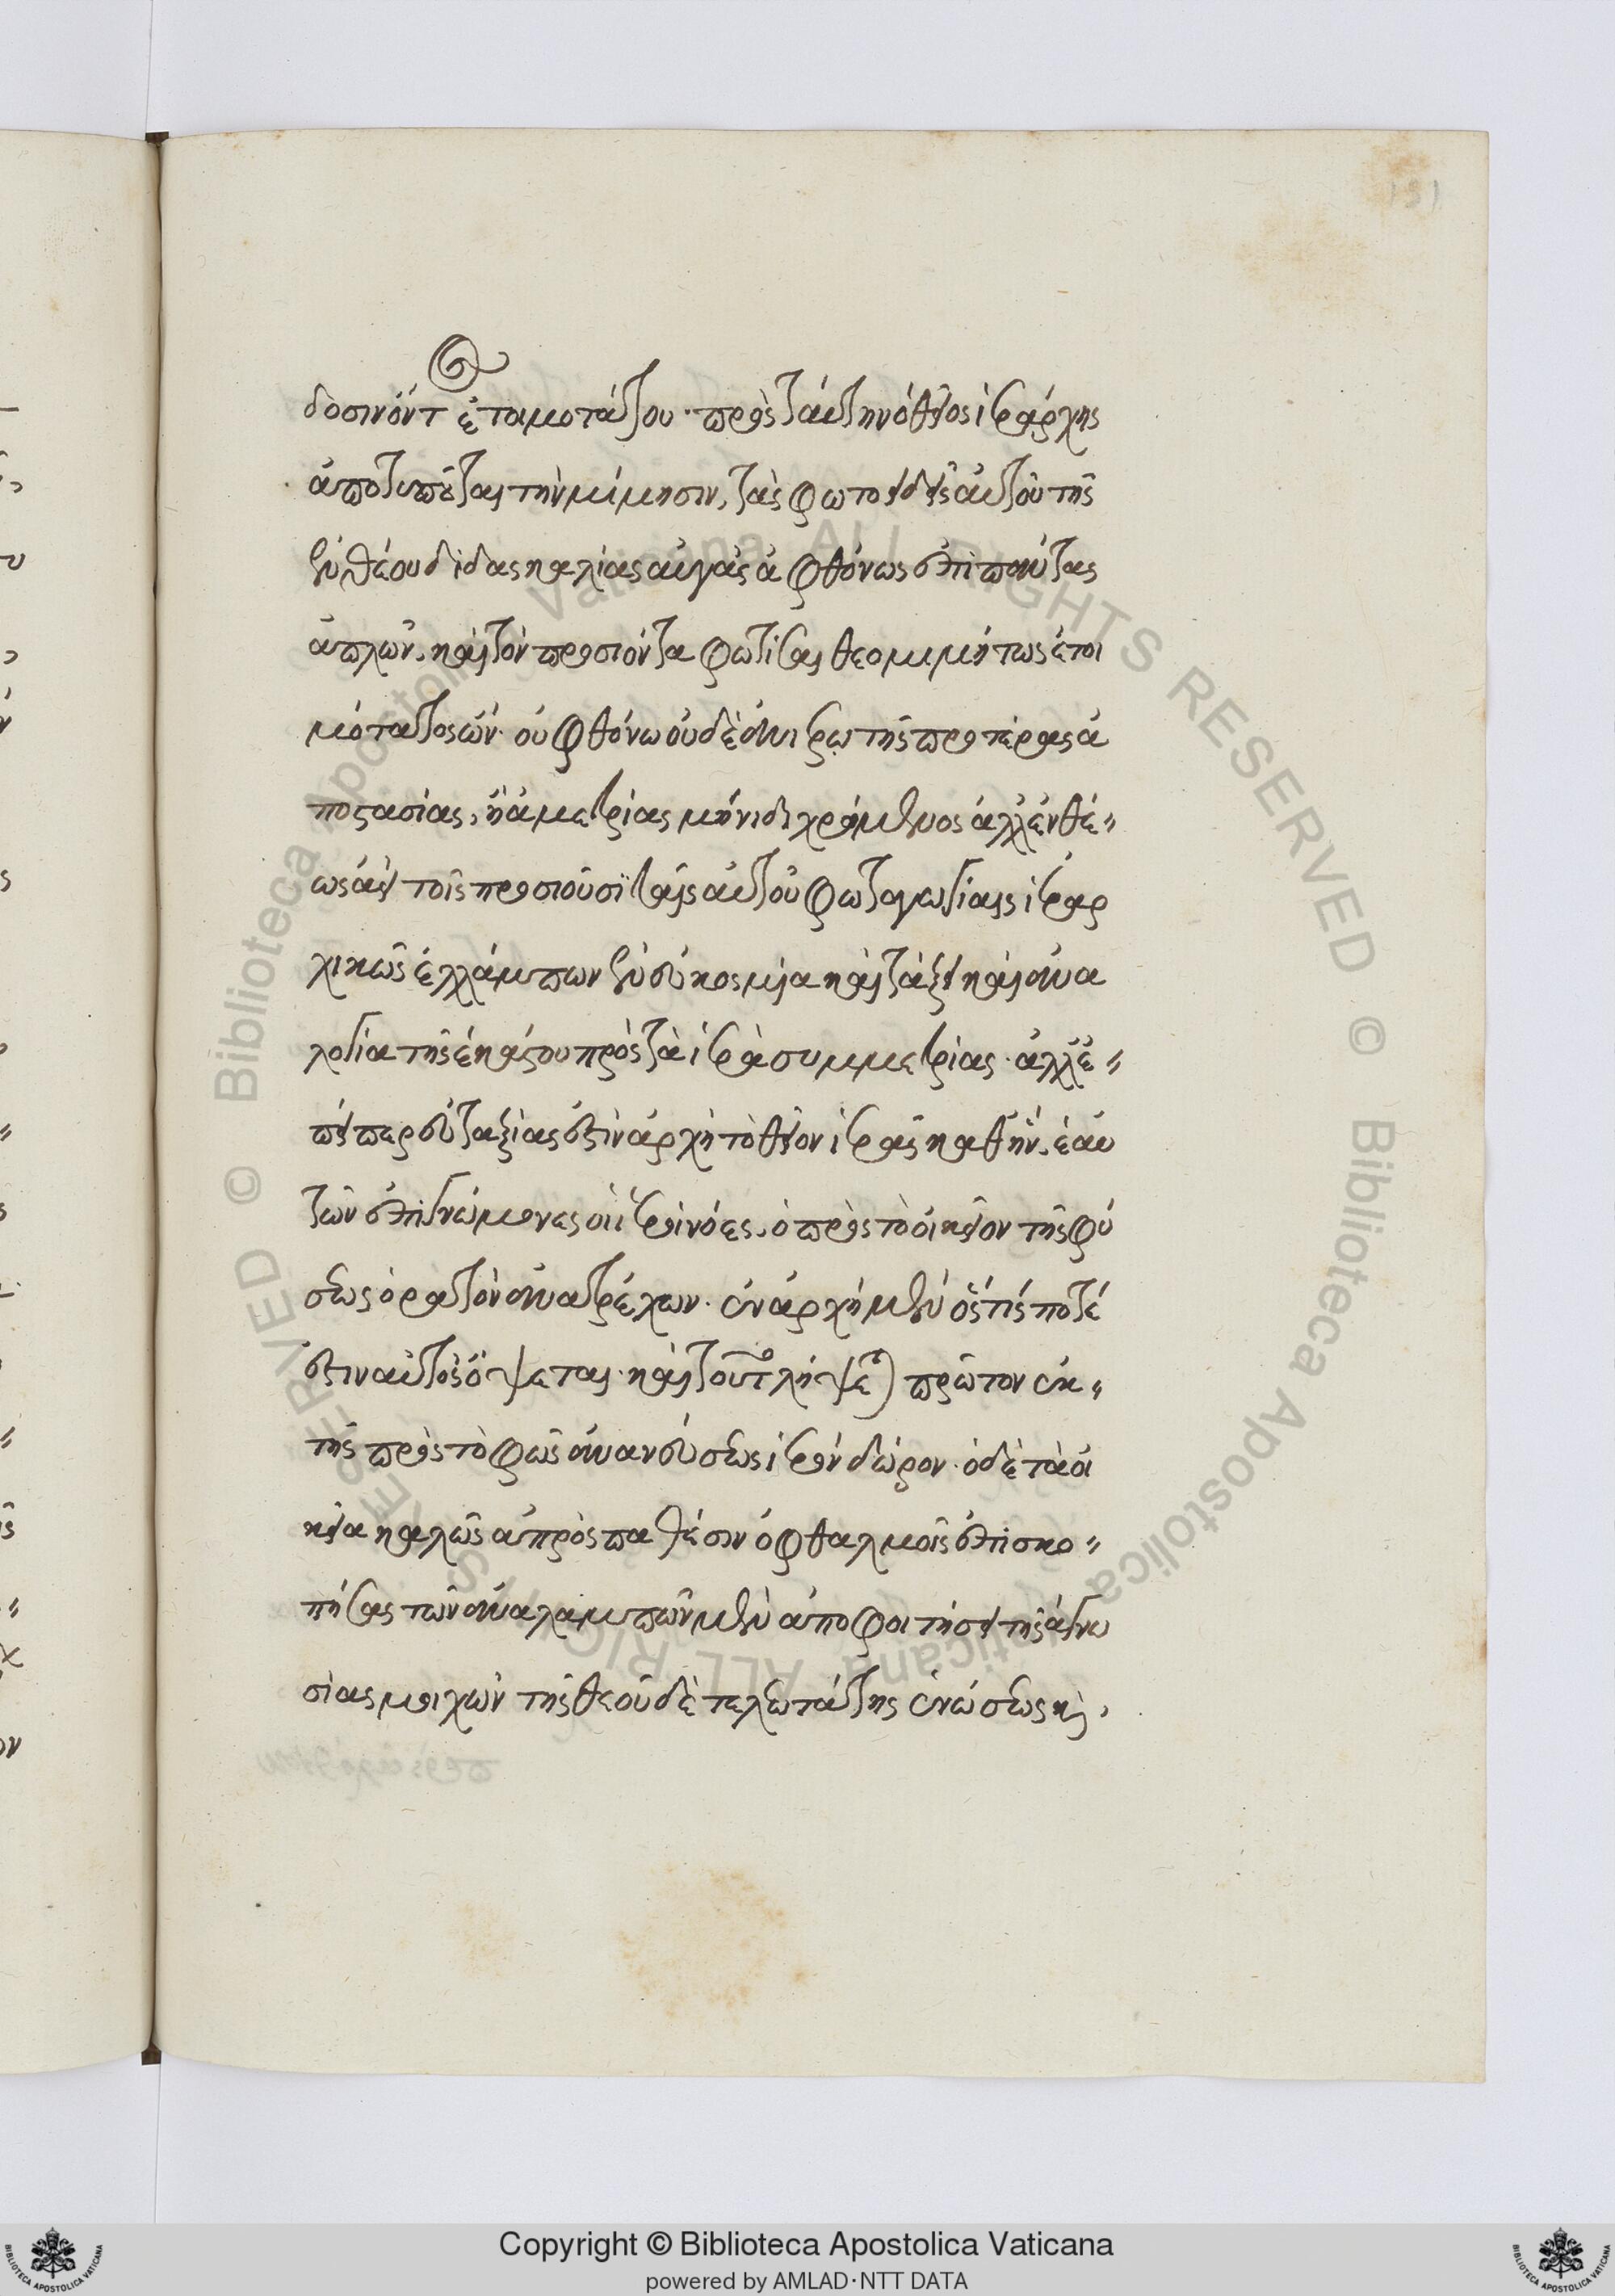 δοσιν ὄντως ἑτοιμοτάτου· πρὸς ταύτην ὁ θεῖος ἱεράρχης
ἀποτυποῦται τὴν μίμησιν, τὰς φωτοειδεῖς αὐτοῦ τῆς
ἐνθέου διδασκαλίας αὐγὰς ἀφθόνως ἐπὶ πάντας
ἁπλῶν, καὶ τὸν προσιόντα φωτίσαι θεομιμήτως ἑτοι
μότατος ὤν· οὐ φθόνω οὐδὲ ἀνιέρω τῆς προτέρας ἀ
ποστασίας, ἢ ἀμετρίας μήνιδι χρώμενος ἀλλ' ἐνθέ"
ως ἀεὶ τοῖς προσιοῦσι ταῖς αὐτοῦ φωταγωγίαις ἱεραρ
χικῶς ἐλλάμπων ἐν εὐκοσμία καὶ τάξει καὶ ἀνα
λογία τῆς ἑκάστου πρὸς τὰ ἱερὰ συμμετρίας· ἀλλ' ἐ"
πείπερ εὐταξίας ἐστὶν ἀρχὴ τὸ θεῖον ἱερᾶς καθ' ἣν, ἑαυ
τῶν ἐπιγνώμονες οἱ ἱεροὶ νόες, ὁ πρὸς τὸ οἰκεῖον τῆς φύ
σεως ὁρατὸν ἀνατρέχων· ἐν ἀρχῇ μὲν ὅστίς ποτέ
ἐστιν αὐτὸς ὄψεται· καὶ τοῦτο λήψεται πρῶτον ἐκ"
τῆς πρὸς τὸ φῶς ἀνανεύσεως ἱερὸν δῶρον· ὁ δὲ τὰ οἰ
κεῖα καλῶς ἀπροσπαθέσιν ὀφθαλμοῖς ἐπισκο"
πήσας τῶν ἀναλαμπῶν μὲν ἀποφοιτήσει τῆς ἀγνω
σίας μυχῶν τῆς θεοῦ δὲ τελεωτάτης ἑνώσεως κ(αὶ)
Copyright © Biblioteca Apostolica Vaticana
powered by AMLAD·NTT DATA